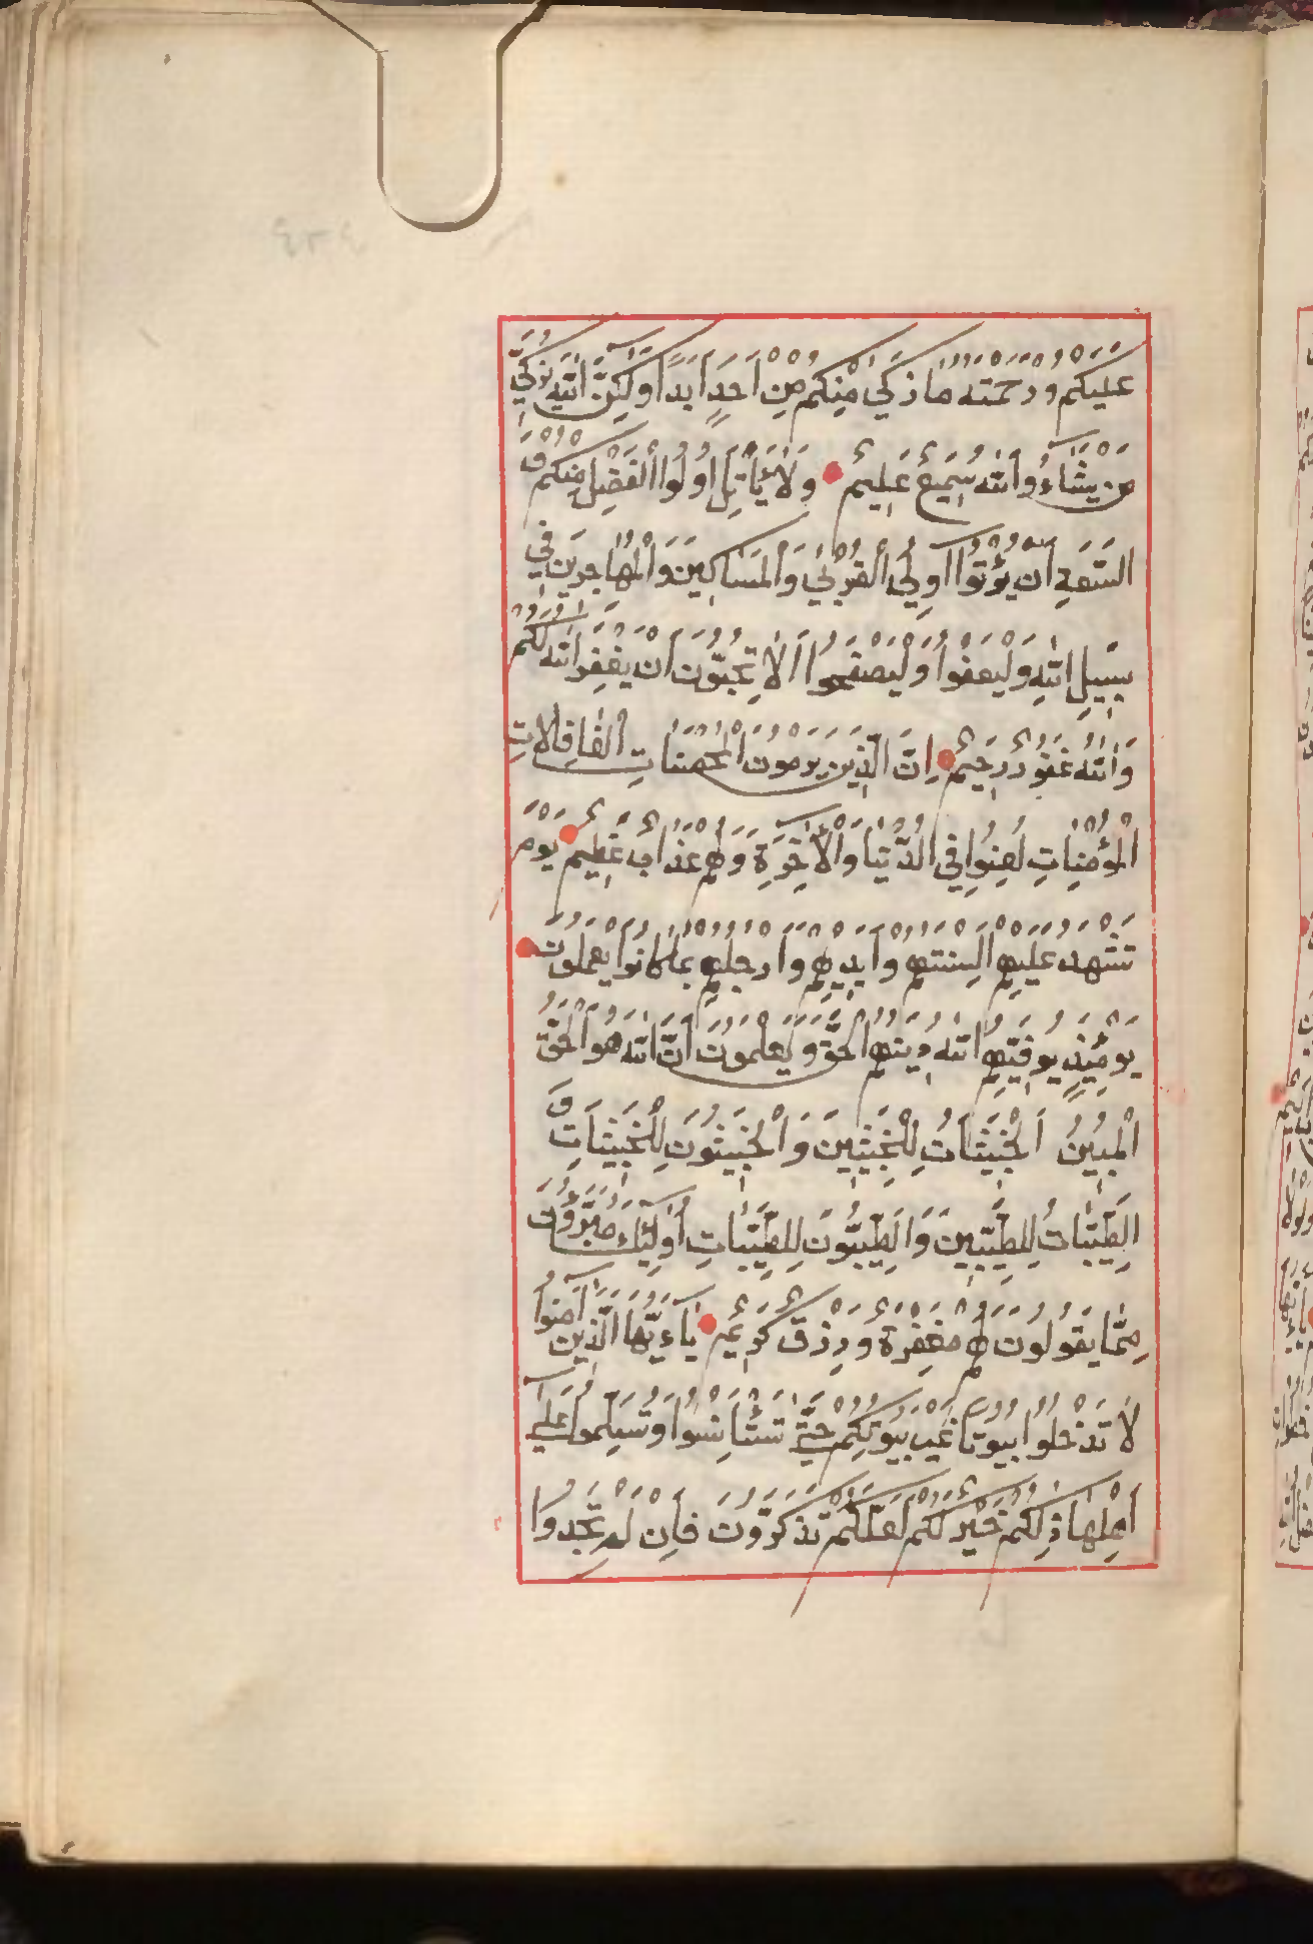 عَلَيْكُمْ وَرَحْمَتُهُ مَا زَكَىٰ مِنْكُمْ مِنْ أَحَدٍ أَبَدًا وَلَٰكِنَّ اللَّهَ يُزَكِّي
مَنْ يَشَاءُ وَاللَّهُ سَمِيعٌ عَلِيمٌ وَلَا يَأْتَلِ أُولُوا الْفَضْلِ مِنْكُمْ وَ
السَّعَةِ أَنْ يُؤْتُوا أُولِي الْقُرْبَىٰ وَالْمَسَاكِينَ وَالْمُهَاجِرِينَ فِي
سَبِيلِ اللَّهِ وَلْيَعْفُوا وَلْيَصْفَحُوا أَلَا تُحِبُّونَ أَنْ يَغْفِرَ اللَّهُ لَكُمْ
وَاللَّهُ غَفُورٌ رَحِيمٌ إِنَّ الَّذِينَ يَرْمُونَ الْمُحْصَنَاتِ الْغَافِلَاتِ
الْمُؤْمِنَاتِ لُعِنُوا فِي الدُّنْيَا وَالْآخِرَةِ وَلَهُمْ عَذَابٌ عَظِيمٌ يَوْمَ
تَشْهَدُ عَلَيْهِمْ أَلْسِنَتُهُمْ وَأَيْدِيهِمْ وَأَرْجُلُهُمْ بِمَا كَانُوا يَعْمَلُونَ
يَوْمَئِذٍ يُوَفِّيهِمُ اللَّهُ دِينَهُمُ الْحَقَّ وَيَعْلَمُونَ أَنَّ اللَّهَ هُوَ الْحَقُّ
الْمُبِينُ الْخَبِيثَاتُ لِلْخَبِيثِينَ وَالْخَبِيثُونَ لِلْخَبِيثَاتِ وَ
الطَّيِّبَاتُ لِلطَّيِّبِينَ وَالطَّيِّبُونَ لِلطَّيِّبَاتِ أُولَٰئِكَ مُبَرَّءُونَ
مِمَّا يَقُولُونَ لَهُمْ مَغْفِرَةٌ وَرِزْقٌ كَرِيمٌ يَاأَيُّهَا الَّذِينَ آمَنُوا
لَا تَدْخُلُوا بُيُوتًا غَيْرَ بُيُوتِكُمْ حَتَّىٰ تَسْتَأْنِسُوا وَتُسَلِّمُوا عَلَىٰ
أَهْلِهَا ذَٰلِكُمْ خَيْرٌ لَكُمْ لَعَلَّكُمْ تَذَكَّرُونَ فَإِنْ لَمْ تَجِدُوا